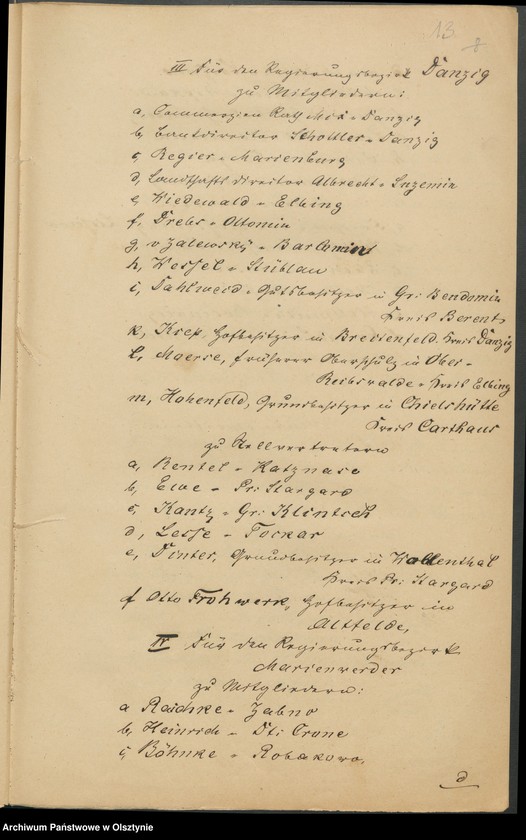 13
8
III Für den Regierungsbezirk Danzig
zu Mitgliedern:
a, Commerzien Rath Mix - Danzig
b, Bankdirector Schottler - Danzig
c, Regier - Marienburg
d, Landschafts director Albrecht - Suzemin
e, Wiedewald - Elbing
f, Drebs - Ottomin
g, v Zalewsky - Barlomin
h, Wessel - Stüblau
i, Dahlweid - Gutsbesitzer in Gr: Bendomin
Kreis Berent
k, Kiep, Hofbesitzer in Breitenfeld, Kreis Danzig
l, Moerse, früherer Oberschulz in Ober-
Kerbswalde - Kreis Elbing
m, Hohenfeld, Grundbesitzer in Chielshütte
Kreis Carthaus
zu Stellvertretern
a, Rentel - Katznase
b, Ewe - Pr: Stargard
c, Kantz - Gr: Klintsch
d, Lesse - Tockar
e, Dinter, Grundbesitzer in Wollenthal
Kreis Pr: Stargard
f Otto Frohwerk, Hofbesitzer in
Altfelde,
IV Für den Regierungsbezirk
Marienwerder
zu Mitgliedern:
a Raschke - Zabno
b, Heinrich - Dt: Crone
c, Böhnke - Robakowo,
d
Archiwum Państwowe w Olsztynie